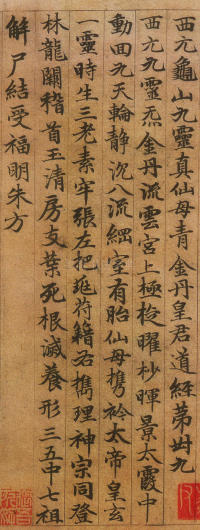 西元龜山九靈真仙母青金丹皇君道經第卅九
西元九靈炁金丹流雲宮上極稜曜杪暉景太霞中
動回九天輪静沉八流綱室有胎仙母攜衿太帝皇玄
一靈時生三老素牢張左把符籍右攜理神宗同登
林龍闕稽首玉清房支葉死根滅養形三五中七祖
解尸結受福明朱方